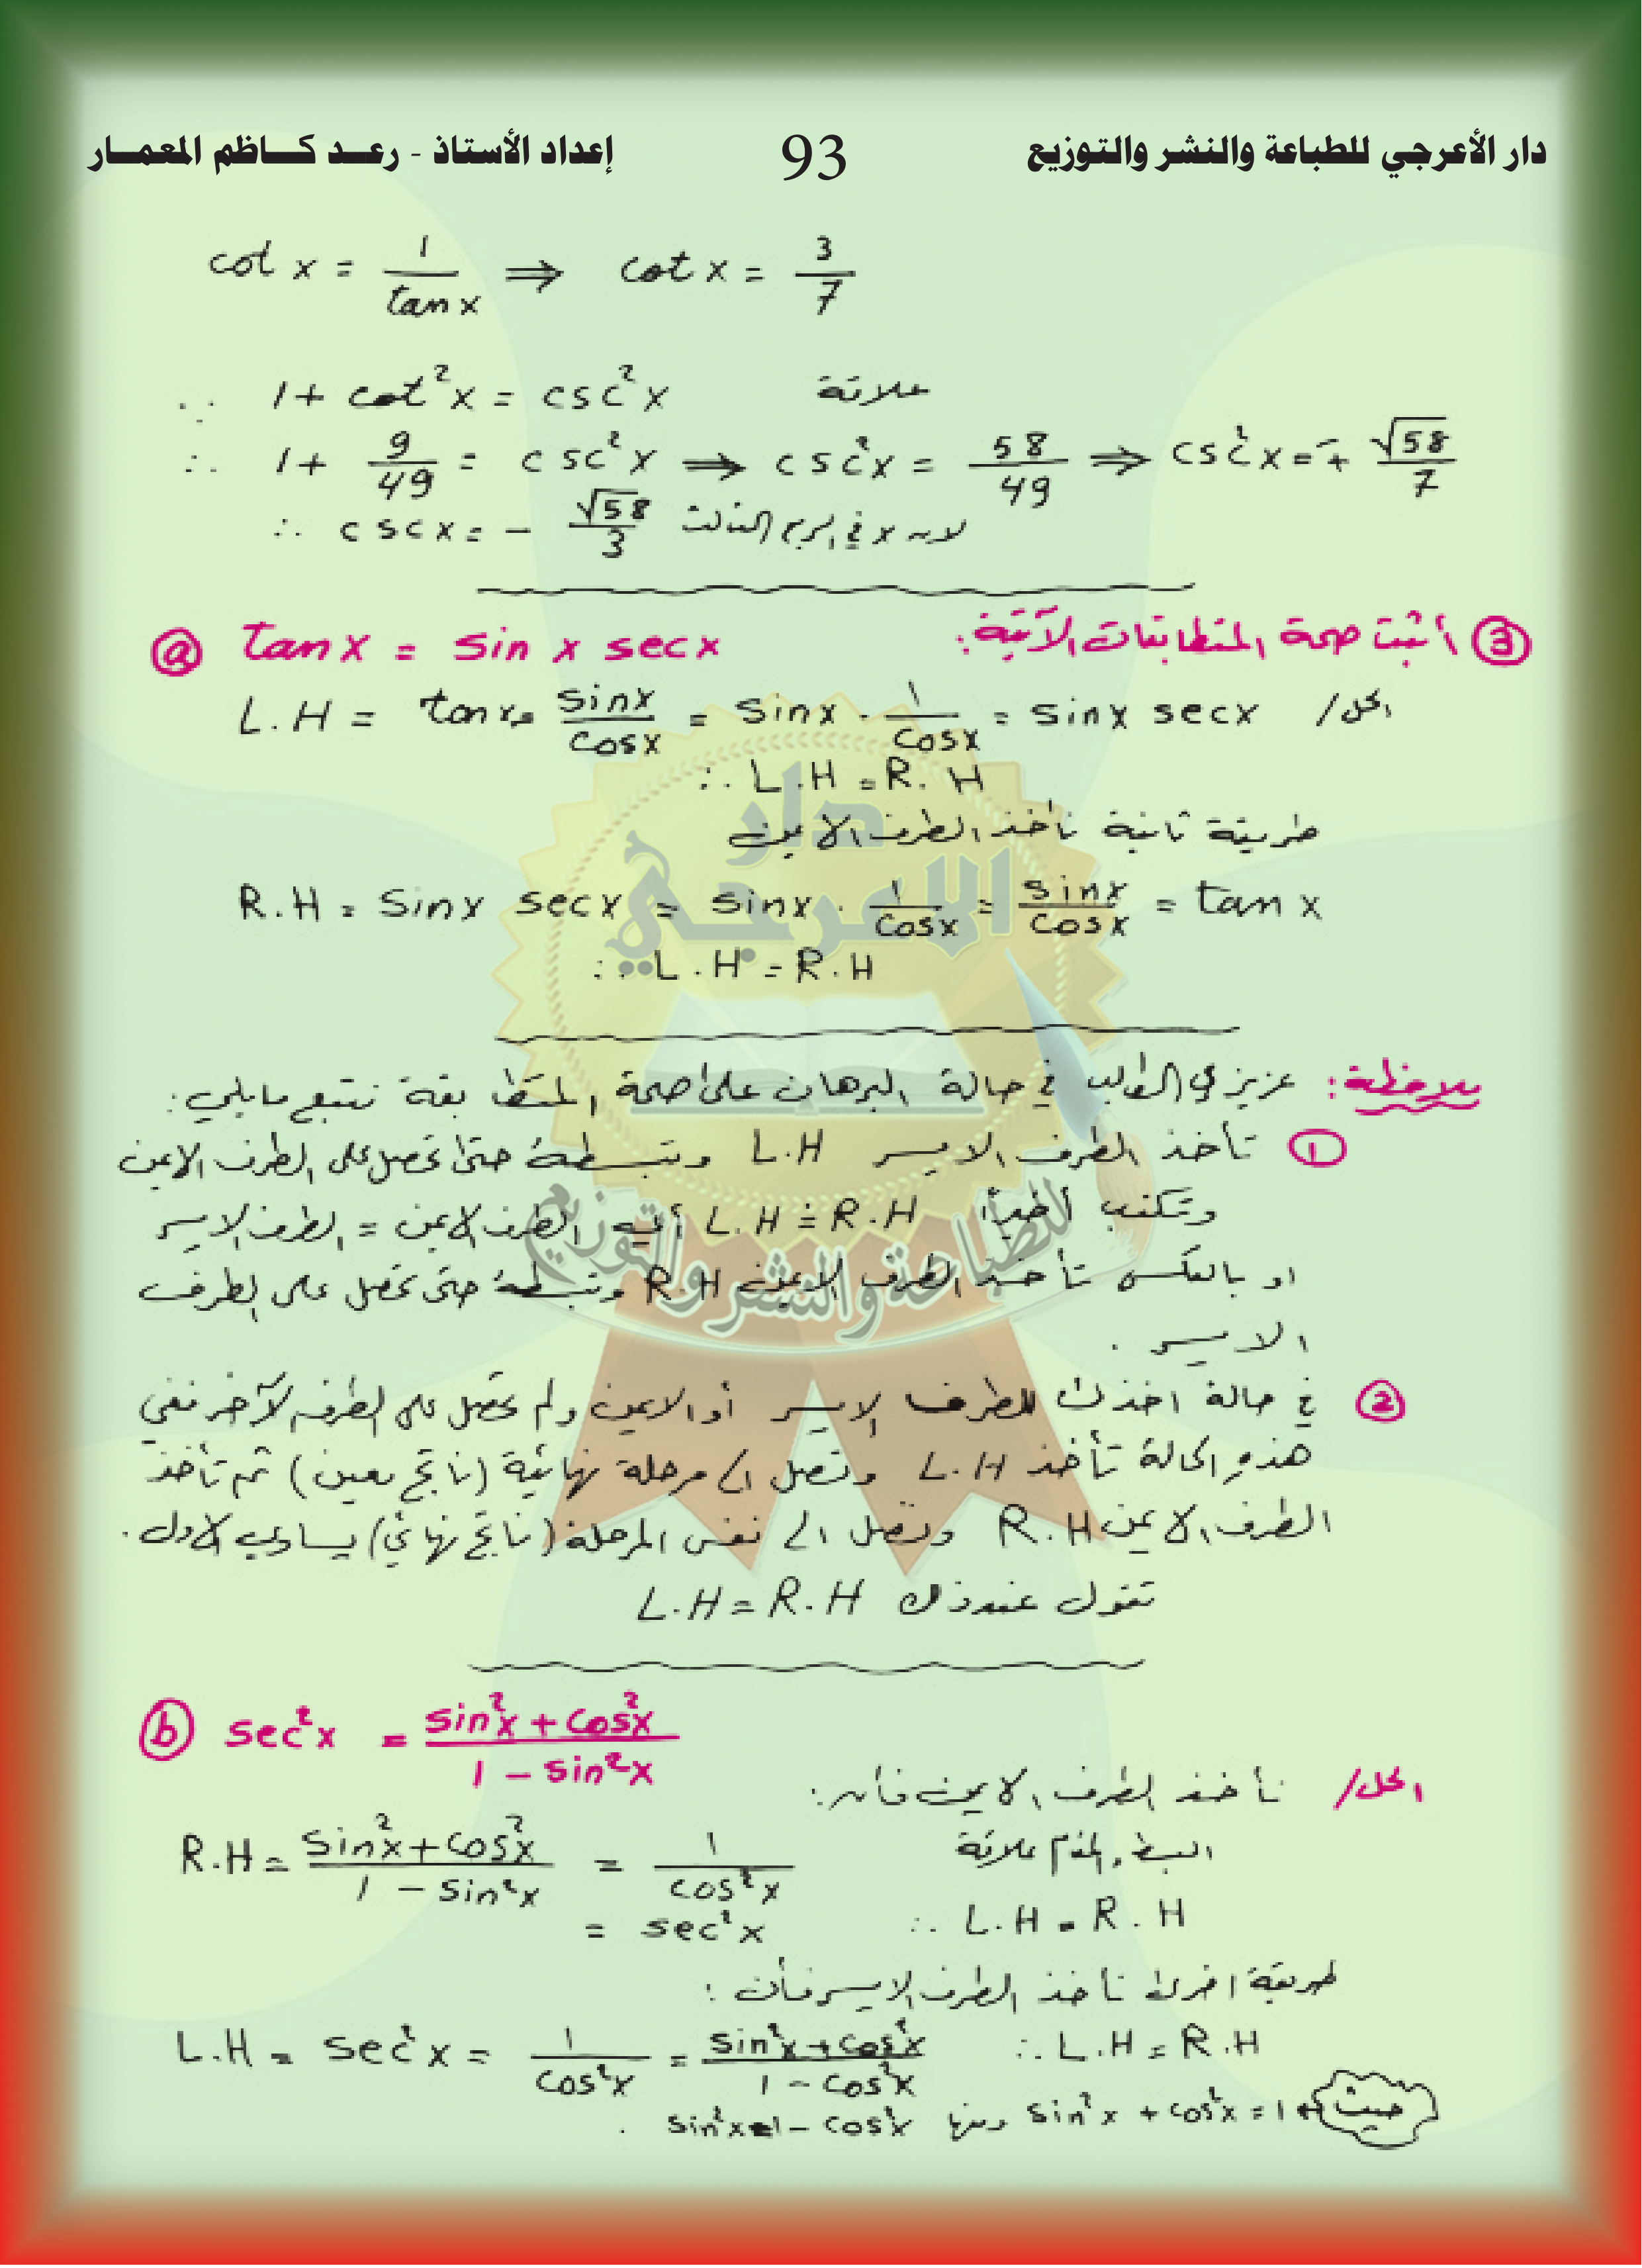 دار الأعرجي للطباعة والنشر والتوزيع 93 إعداد الأستاذ - رعـد كـاظم المعمـار
cot x = 1/tan x ⇒ cot x = 3/7
∵ 1 + cot²x = csc²x علاقة
∴ 1 + 9/49 = csc²x ⇒ csc²x = 58/49 ⇒ csc²x = ∓ √58/7
∴ csc x = - √58/3 لان x في الربع الثالث
③ أثبت صحة المتطابقات الآتية: ⓐ tan x = sin x sec x
الحل/ L.H = tan x = sin x/cos x = sin x . 1/cos x = sin x sec x
∴ L.H = R.H
طريقة ثانية نأخذ الطرف الايمن
R.H = sin x sec x = sin x . 1/cos x = sin x/cos x = tan x
∴ L.H = R.H
ملاحظة: عزيزي الطالب في حالة البرهان على صحة المتطابقة نتبع مايلي:
① تأخذ الطرف الايسر L.H وتبسطه حتى تحصل على الطرف الايمن
وتكتب أخيراً L.H = R.H أي الطرف الايمن = الطرف الايسر
او بالعكس تأخذ الطرف الايمن R.H وتبسطه حتى تحصل على الطرف
الايسر .
② في حالة اخذك للطرف الايسر أو الايمن ولم تحصل على الطرف الآخر ففي
هذه الحالة تأخذ L.H وتصل الى مرحلة نهائية (ناتج معين) ثم تأخذ
الطرف الايمن R.H وتصل الى نفس المرحلة (ناتج نهائي) يساوي الاول.
تقول عندذاك L.H = R.H
ⓑ sec²x = sin²x + cos²x/1 - sin²x
الحل/ نأخذ الطرف الايمن فأن:
R.H = sin²x + cos²x/1 - sin²x = 1/cos²x البسط والمقام علاقة
= sec²x ∴ L.H = R.H
طريقة اخرى نأخذ الطرف الايسر فأن:
L.H = sec²x = 1/cos²x = sin²x + cos²x/1 - cos²x ∴ L.H = R.H
حيث sin²x + cos²x = 1 ومنها sin²x = 1 - cos²x .
دار
الاعرجي
للطباعة والنشر والتوزيع